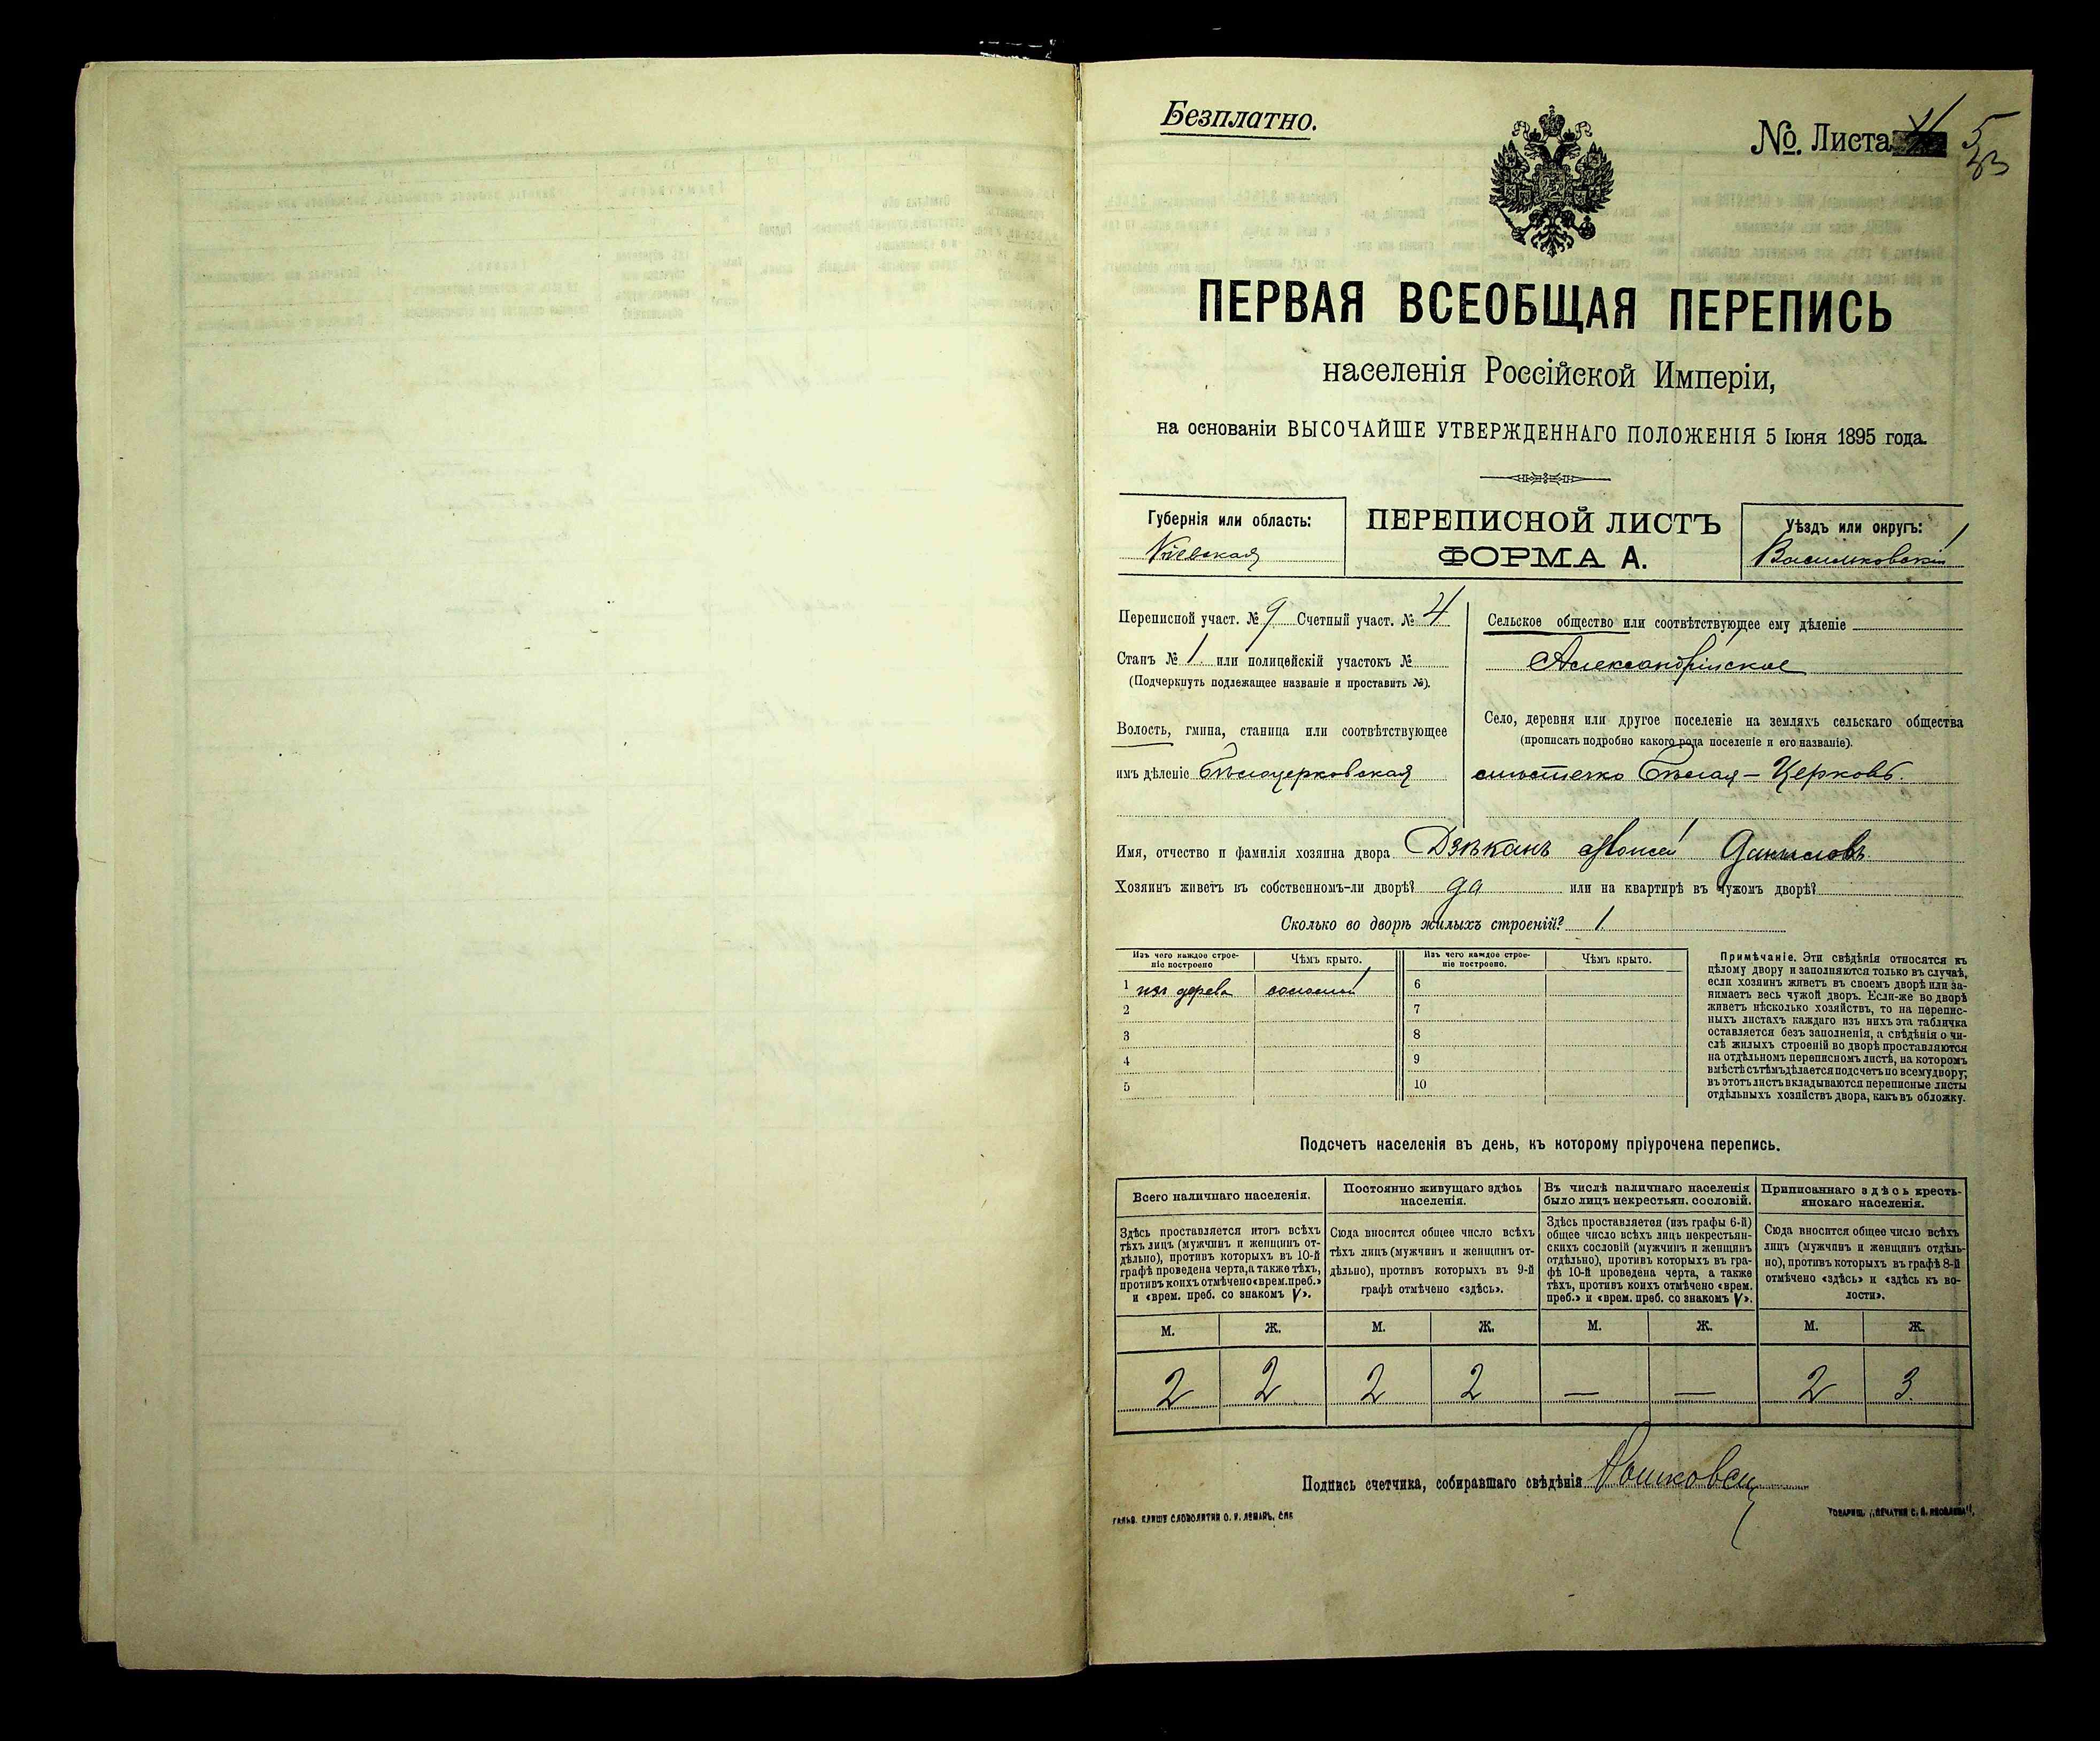 Безплатно.
№. Листа 5
ПЕРВАЯ ВСЕОБЩАЯ ПЕРЕПИСЬ
населенія Россійской Имперіи,
на основаніи ВЫСОЧАЙШЕ УТВЕРЖДЕННАГО ПОЛОЖЕНІЯ 5 Іюня 1895 года.
Губернія или область:
Кіевская
ПЕРЕПИСНОЙ ЛИСТЪ
ФОРМА А.
Уѣздъ или округъ:
Васильковскій
Переписной участ. № 9 Счетный участ. № 4
Станъ № 1 или полицейскій участокъ №
(Подчеркнуть подлежащее названіе и проставить №).
Волость, гмина, станица или соотвѣтствующее
имъ дѣленіе Бѣлоцерковская
Сельское общество или соотвѣтствующее ему дѣленіе
Александрійское
Село, деревня или другое поселеніе на земляхъ сельскаго общества
(прописать подробно какого рода поселеніе и его названіе).
мѣстечко Бѣлая-Церковь.
Имя, отчество и фамилія хозяина двора Моисей Даниловъ
Хозяинъ живетъ въ собственномъ-ли дворѣ? да или на квартирѣ въ чужомъ дворѣ?
Сколько во дворѣ жилыхъ строеній? 1
Изъ чего каждое строе-
ніе построено
Чѣмъ крыто.
Изъ чего каждое строе-
ніе построено.
Чѣмъ крыто.
1 изъ дерева соломой 6
2 7
3 8
4 9
5 10
Примѣчаніе. Эти свѣдѣнія относятся къ
цѣлому двору и заполняются только въ случаѣ,
если хозяинъ живетъ въ своемъ дворѣ или за-
нимаетъ весь чужой дворъ. Если-же во дворѣ
живетъ нѣсколько хозяйствъ, то на перепис-
ныхъ листахъ каждаго изъ нихъ эта табличка
оставляется безъ заполненія, а свѣдѣнія о чи-
слѣ жилыхъ строеній во дворѣ проставляются
на отдѣльномъ переписномъ листѣ, на которомъ
вмѣстѣ съ тѣмъ дѣлается подсчетъ по всему двору;
въ этотъ листъ вкладываются переписные листы
отдѣльныхъ хозяйствъ двора, какъ въ обложку.
Подсчетъ населенія въ день, къ которому пріурочена перепись.
Всего наличнаго населенія.
Постоянно живущаго здѣсь
населенія.
Въ числѣ наличнаго населенія
было лицъ некрестьян. сословій.
Приписаннаго здѣсь кресть-
янскаго населенія.
Здѣсь проставляется итогъ всѣхъ
тѣхъ лицъ (мужчинъ и женщинъ от-
дѣльно), противъ которыхъ въ 10-й
графѣ проведена черта, а также тѣхъ,
противъ коихъ отмѣчено «врем. преб.»
и «врем. преб. со знакомъ V».
Сюда вносится общее число всѣхъ
тѣхъ лицъ (мужчинъ и женщинъ от-
дѣльно), противъ которыхъ въ 9-й
графѣ отмѣчено «здѣсь».
Здѣсь проставляется (изъ графы 6-й)
общее число всѣхъ лицъ некрестьян-
скихъ сословій (мужчинъ и женщинъ
отдѣльно), противъ которыхъ въ гра-
фѣ 10-й проведена черта, а также
тѣхъ, противъ коихъ отмѣчено «врем.
преб.» и «врем. преб. со знакомъ V».
Сюда вносится общее число всѣхъ
лицъ (мужчинъ и женщинъ отдѣль-
но), противъ которыхъ въ графѣ 8-й
отмѣчено «здѣсь» и «здѣсь къ во-
лости».
М. Ж. М. Ж. М. Ж. М. Ж.
2 2 2 2 — — 2 3
Подпись счетчика, собиравшаго свѣдѣнія
ГАЛЬВ. КЛИШЕ СЛОВОЛИТНИ О. И. ЛЕМАНЪ, СПБ